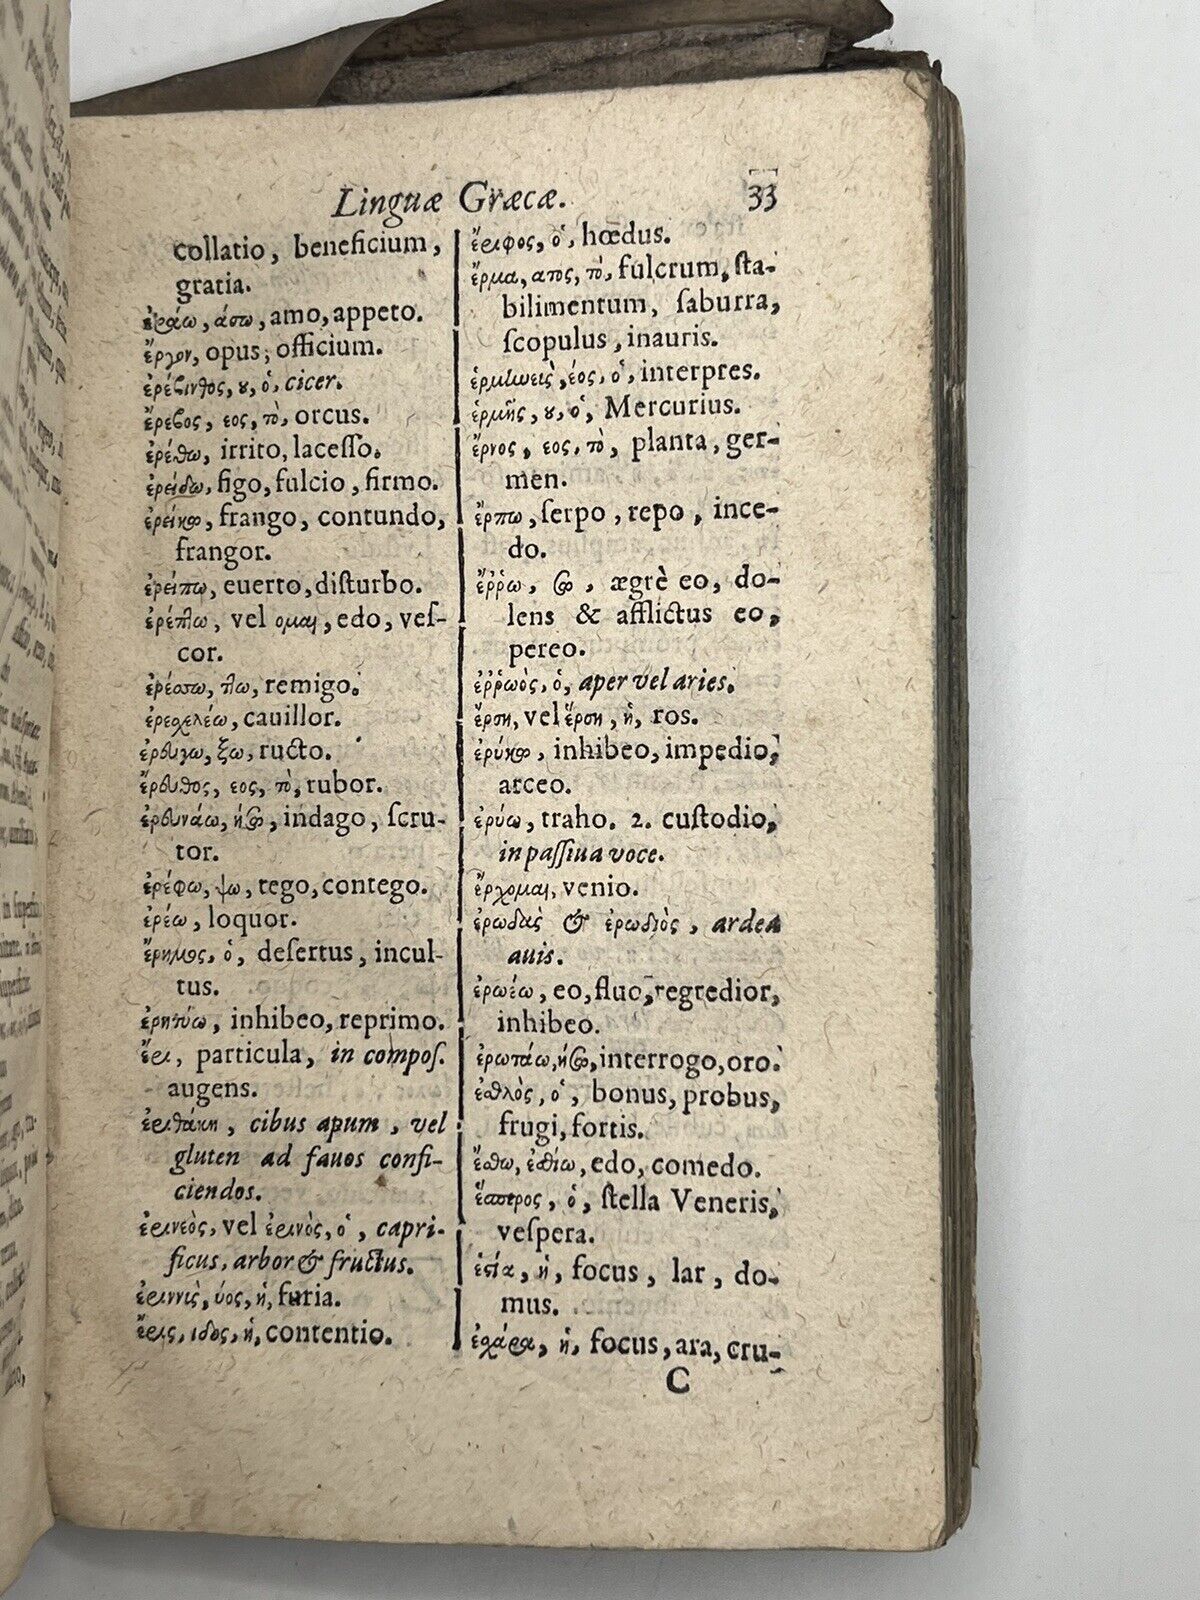 Linguæ Græcæ. 33
collatio, beneficium,
gratia.
ἐράω, άσω, amo, appeto.
ἔργον, opus, officium.
ἐρέβινθος, ȣ, ὁ, cicer.
ἔρεβος, εος, τὸ, orcus.
ἐρέθω, irrito, laceſſo.
ἐρείδω, figo, fulcio, firmo.
ἐρείκω, frango, contundo,
frangor.
ἐρείπω, euerto, diſturbo.
ἐρέπτω, vel ομαι, edo, veſ-
cor.
ἐρέσσω, ττω, remigo.
ἐρεσχελέω, cauillor.
ἐρεύγω, ξω, ructo.
ἔρευθος, εος, τὸ, rubor.
ἐρευνάω, ήσω, indago, ſcru-
tor.
ἐρέφω, ψω, tego, contego.
ἐρέω, loquor.
ἔρημος, ὁ, deſertus, incul-
tus.
ἐρητύω, inhibeo, reprimo.
ἔρι, particula, in compoſ.
augens.
ἐριθάκη, cibus apum, vel
gluten ad fauos confi-
ciendos.
ἐρινεὸς, vel ἐρινὸς, ὁ, capri-
ficus, arbor & fructus.
ἐριννὶς, ύος, ἡ, furia.
ἔρις, ιδος, ἡ, contentio.
ἔριφος, ὁ, hœdus.
ἕρμα, ατος, τὸ, fulcrum, ſta-
bilimentum, ſaburra,
ſcopulus, inauris.
ἑρμηνεὶς, έος, ὁ, interpres.
ἑρμῆς, ȣ, ὁ, Mercurius.
ἔρνος, εος, τὸ, planta, ger-
men.
ἕρπω, ſerpo, repo, ince-
do.
ἔῤῥω, σω, ægrè eo, do-
lens & afflictus eo,
pereo.
ἐῤῥωὸς, ὁ, aper vel aries.
ἔρση, vel ἕρση, ἡ, ros.
ἐρύκω, inhibeo, impedio,
arceo.
ἐρύω, traho. 2. cuſtodio,
in paſſiua voce.
ἔρχομαι, venio.
ἐρωδὰς & ἐρωδιὸς, ardea
auis.
ἐρωέω, eo, fluo, regredior,
inhibeo.
ἐρωτάω, ήσω, interrogo, oro.
ἐσθλὸς, ὁ, bonus, probus,
frugi, fortis.
ἔσθω, ἐσθίω, edo, comedo.
ἕσπερος, ὁ, ſtella Veneris,
veſpera.
ἑστία, ἡ, focus, lar, do-
mus.
ἐσχάρα, ἡ, focus, ara, cru-
C